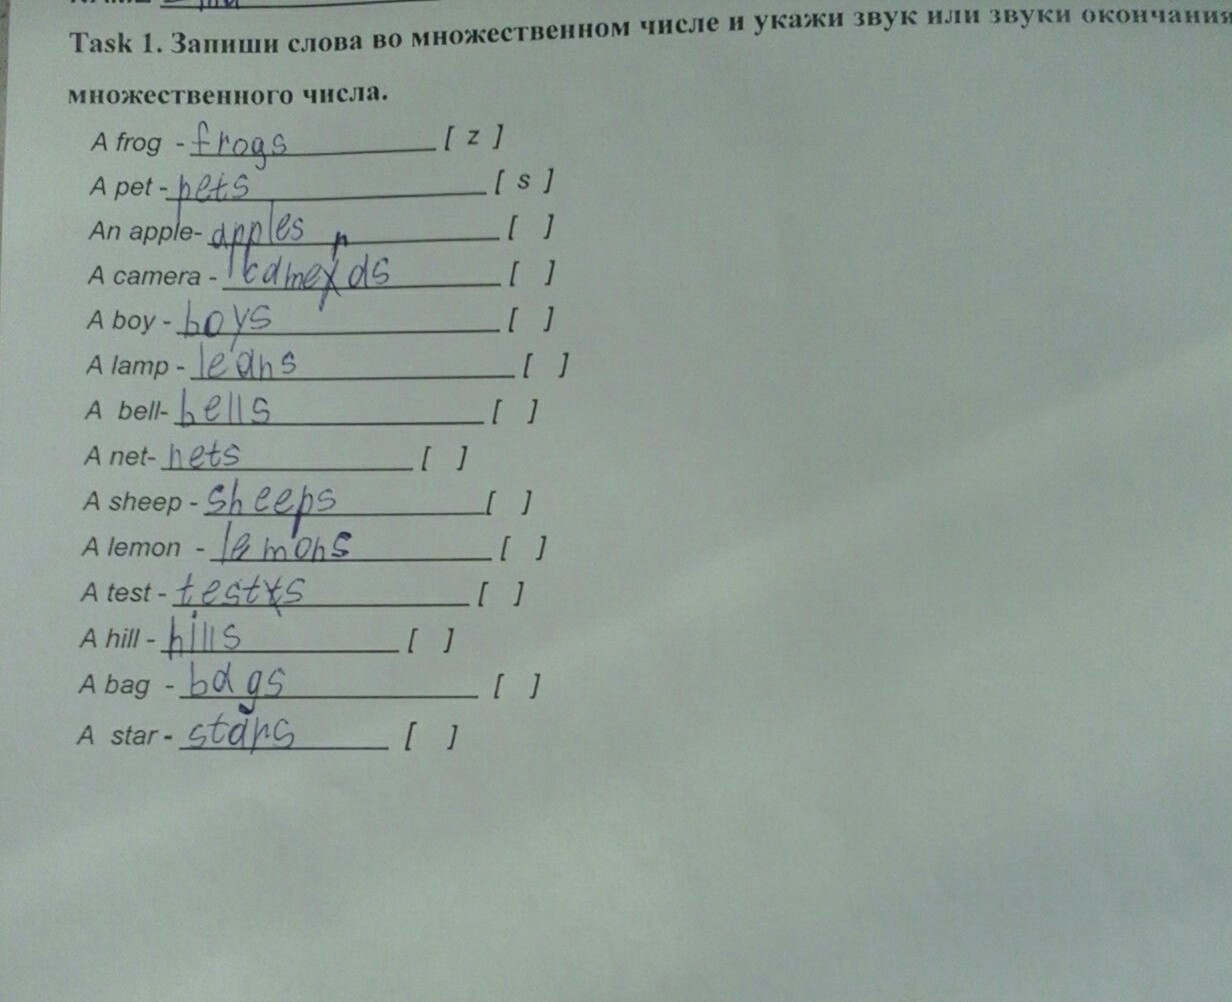 Task 1. Запиши слова во множественном числе и укажи звук или звуки окончания
множественного числа.
A frog - frogs [ z ]
A pet - pets [ s ]
An apple- apples [ ]
A camera - cameras [ ]
A boy - boys [ ]
A lamp - [ ]
A bell- bells [ ]
A net- nets [ ]
A sheep - sheeps [ ]
A lemon - lemons [ ]
A test - tests [ ]
A hill - hills [ ]
A bag - bags [ ]
A star - stars [ ]